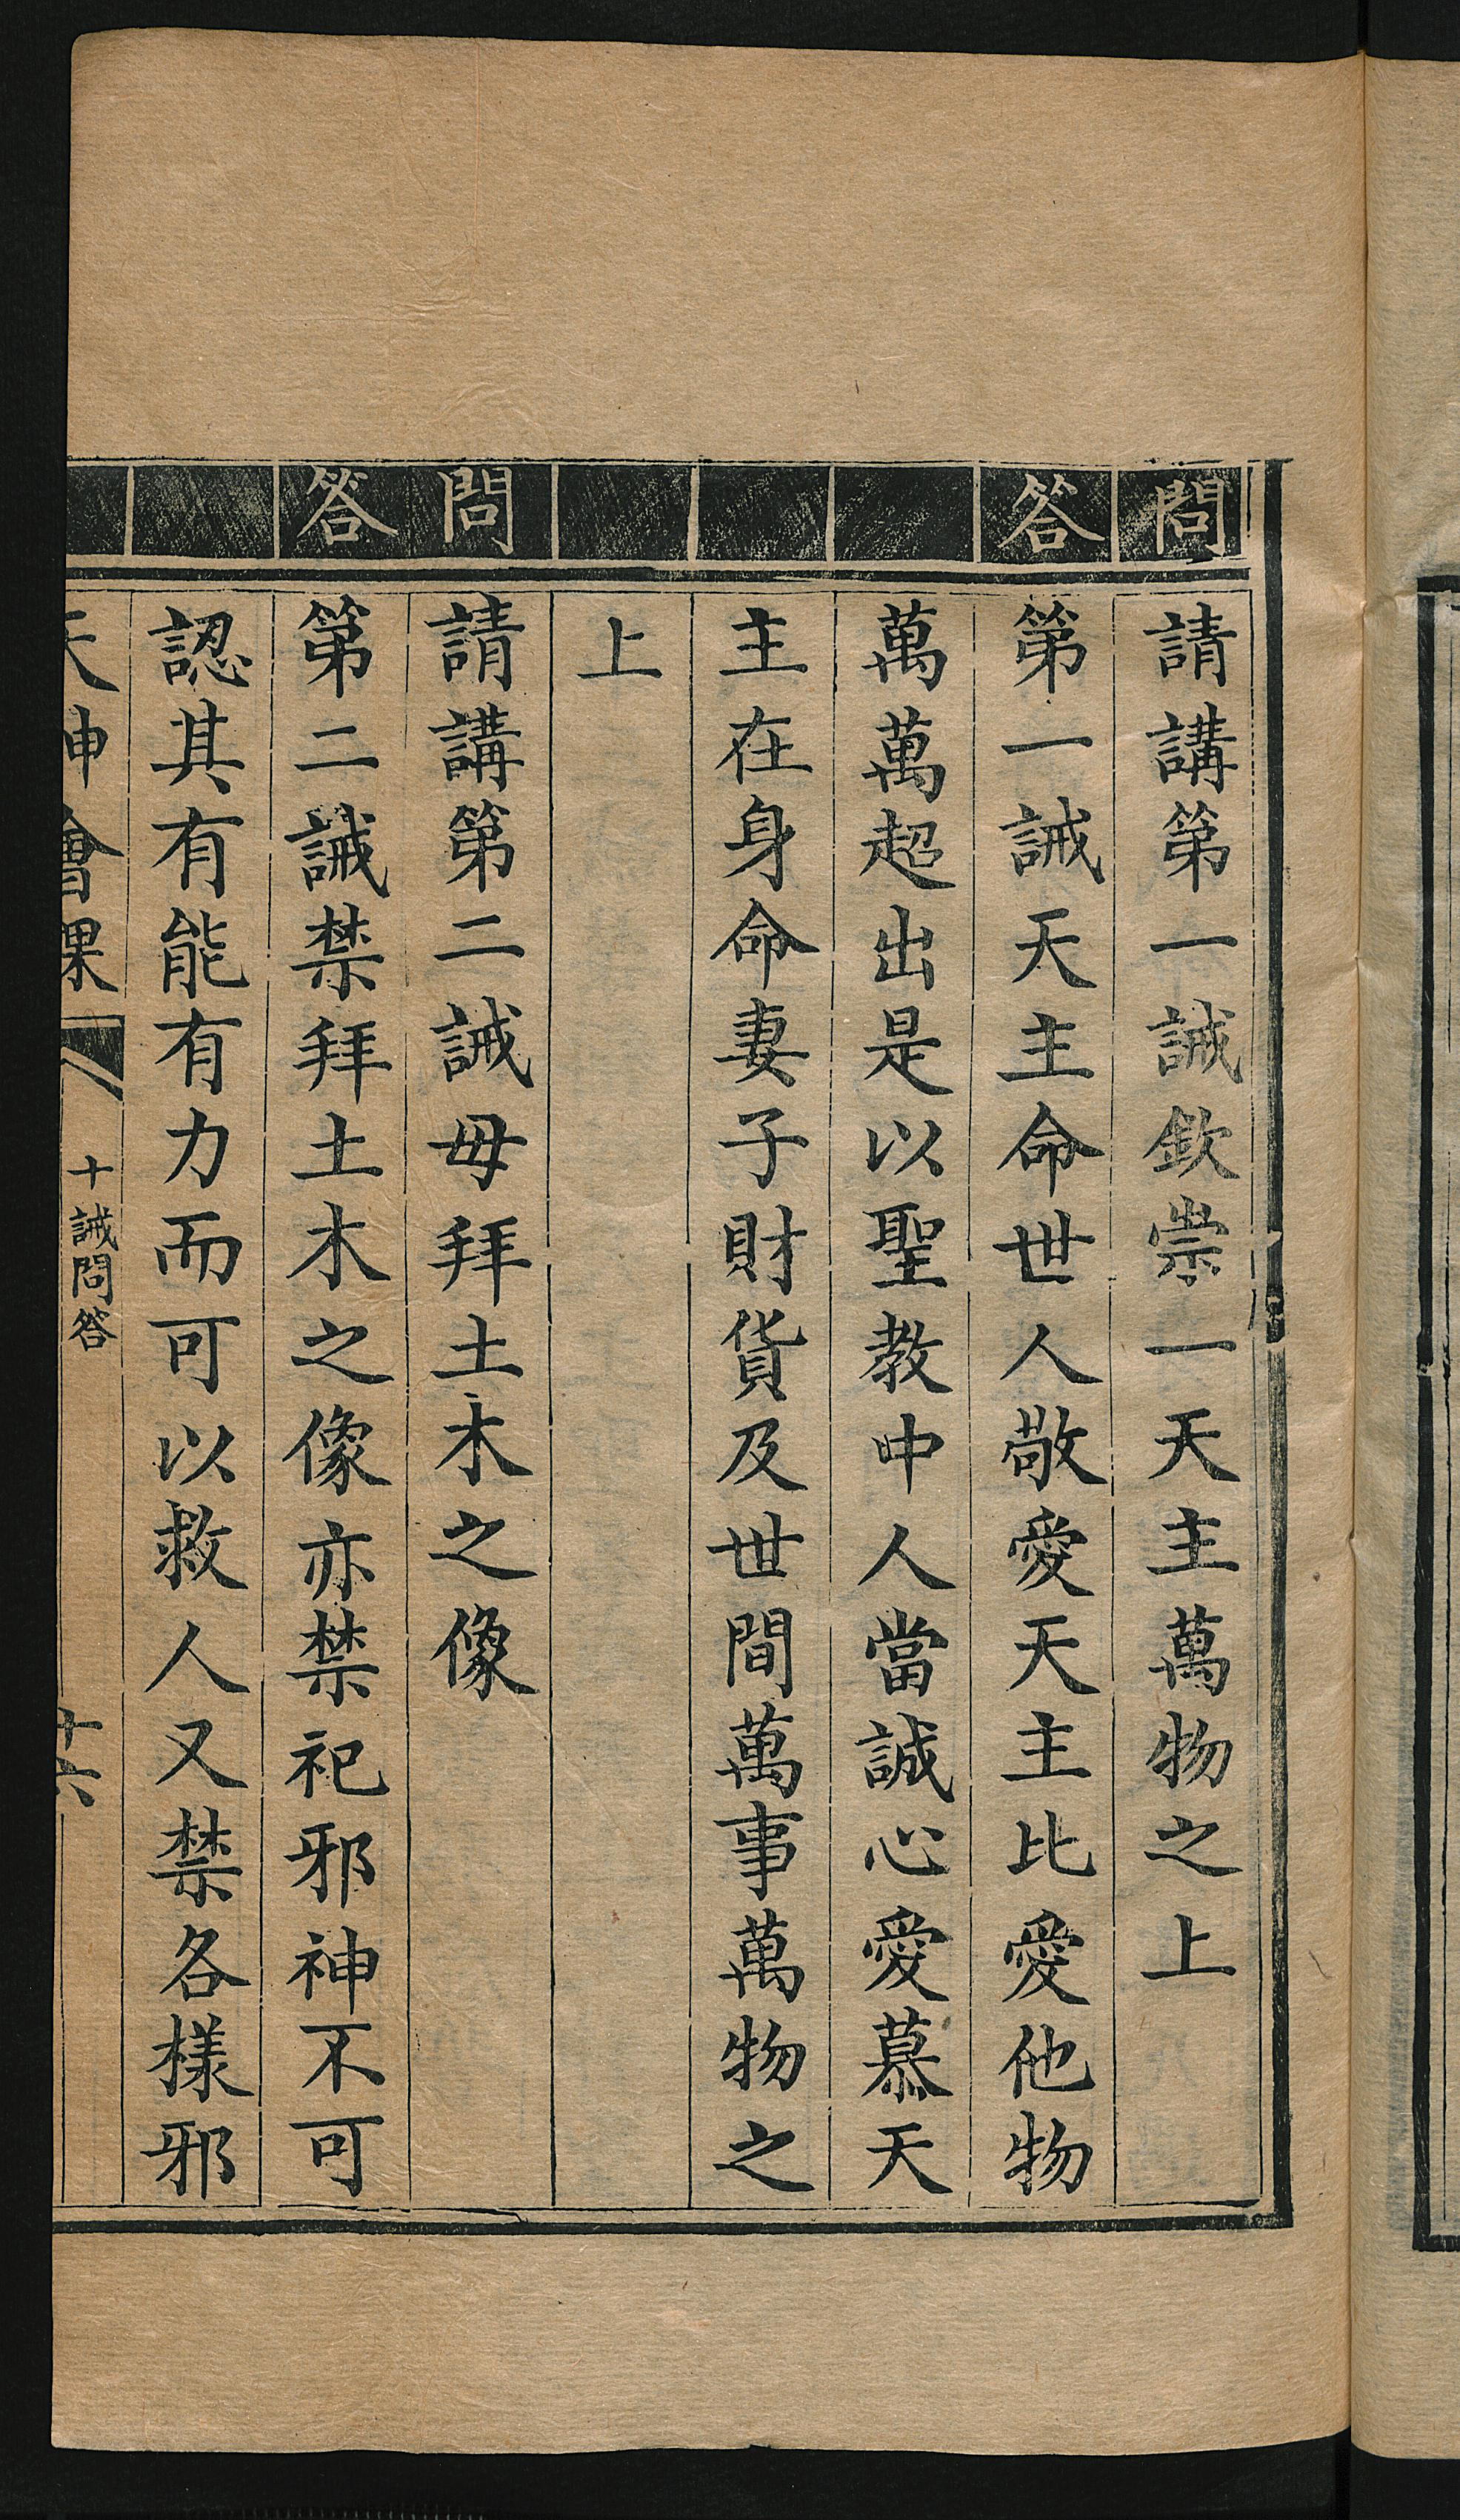 問 請講第一誡欽崇一天主萬物之上
答 第一誡天主命世人敬愛天主比愛他物
萬萬超出是以聖教中人當誠心愛慕天
主在身命妻子財貨及世間萬事萬物之
上
問 請講第二誡毋拜土木之像
答 第二誡禁拜土木之像亦禁祀邪神不可
認其有能有力而可以救人又禁各樣邪
天神會課 十誡問答 十六